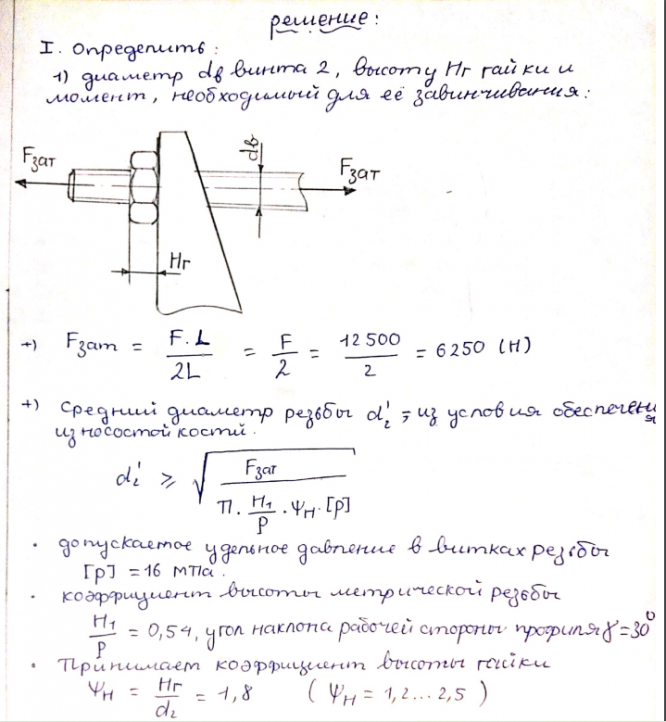 решение:
I. Определить:
1) диаметр dв винта 2, высоту Hг гайки и
момент, необходимый для её завинчивания:
Fзат
dв
Fзат
Hг
+) Fзат = F·L / 2L = F / 2 = 12 500 / 2 = 6250 (Н)
+) Средний диаметр резьбы d₂', из условия обеспечения
износостойкости.
d₂' ≥ √(Fзат / (π · H₁/P · ψH · [p]))
· допускаемое удельное давление в витках резьбы
[p] = 16 мПа.
· коэффициент высоты метрической резьбы
H₁/P = 0,54, угол наклона рабочей стороны профиля γ = 30°
· Принимает коэффициент высоты гайки
ψH = Hг/d₂ = 1,8 ( ψH = 1,2...2,5 )